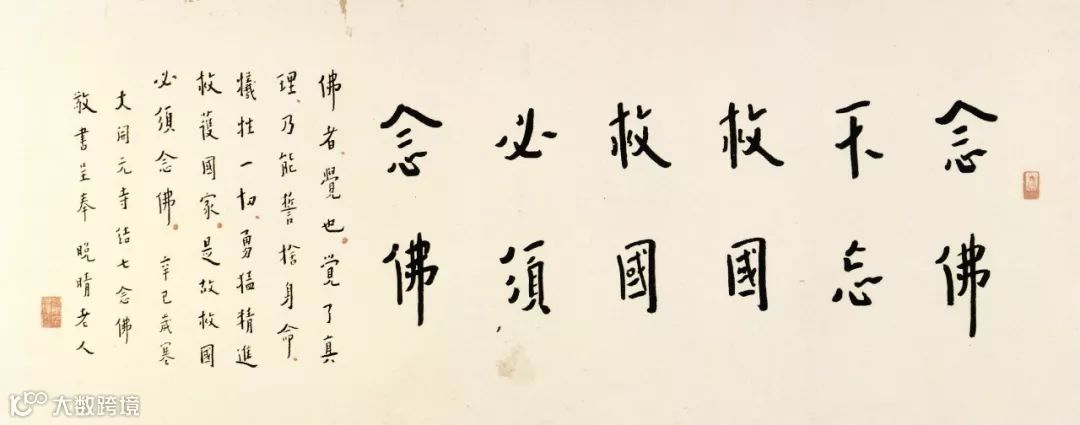 念佛
不忘
救國
救國
必須
念佛
佛者覺也覺了真
理乃能誓捨身命
犧牲一切勇猛精進
救護國家是故救國
必須念佛 辛巳歲寒
大開元寺結七念佛
敬書呈奉晚晴老人
大数跨境